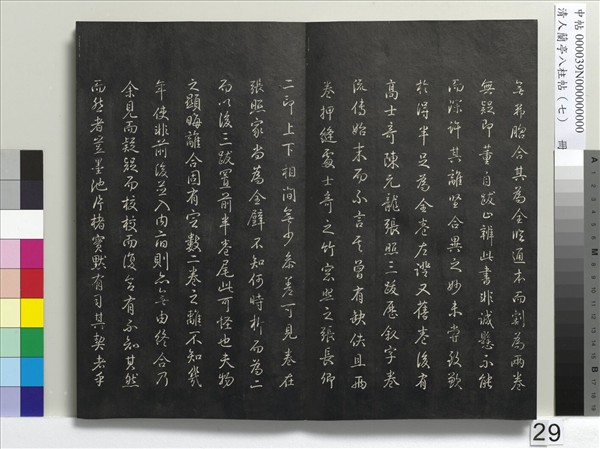 無殊胳合其為全晚通本而割為兩卷
無疑即董自跋正辨此書非誠懸不能
而深許其離坐合異之妙未嘗致歎
於得半足為全卷左證又舊卷後有
高士奇陳元龍張照三跋歷叙字卷
流傳始末而不言其曾有缺佚且兩
卷押縫處士奇之竹窓照之張長卿
二印上下相間無少參差可見卷在
張照家尚為全璧不知何時析而為二
而以後三跋置前半卷尾此可怪也夫物
之顯晦離合固有定數二卷之離不知幾
年使非前後並入內府則亦無由終合乃
余見而疑疑而校校而復合有不知其然
而然者豈墨池片楮實默有司其契者乎
中帖 000039N000000000
清人蘭亭八柱帖（七）
29